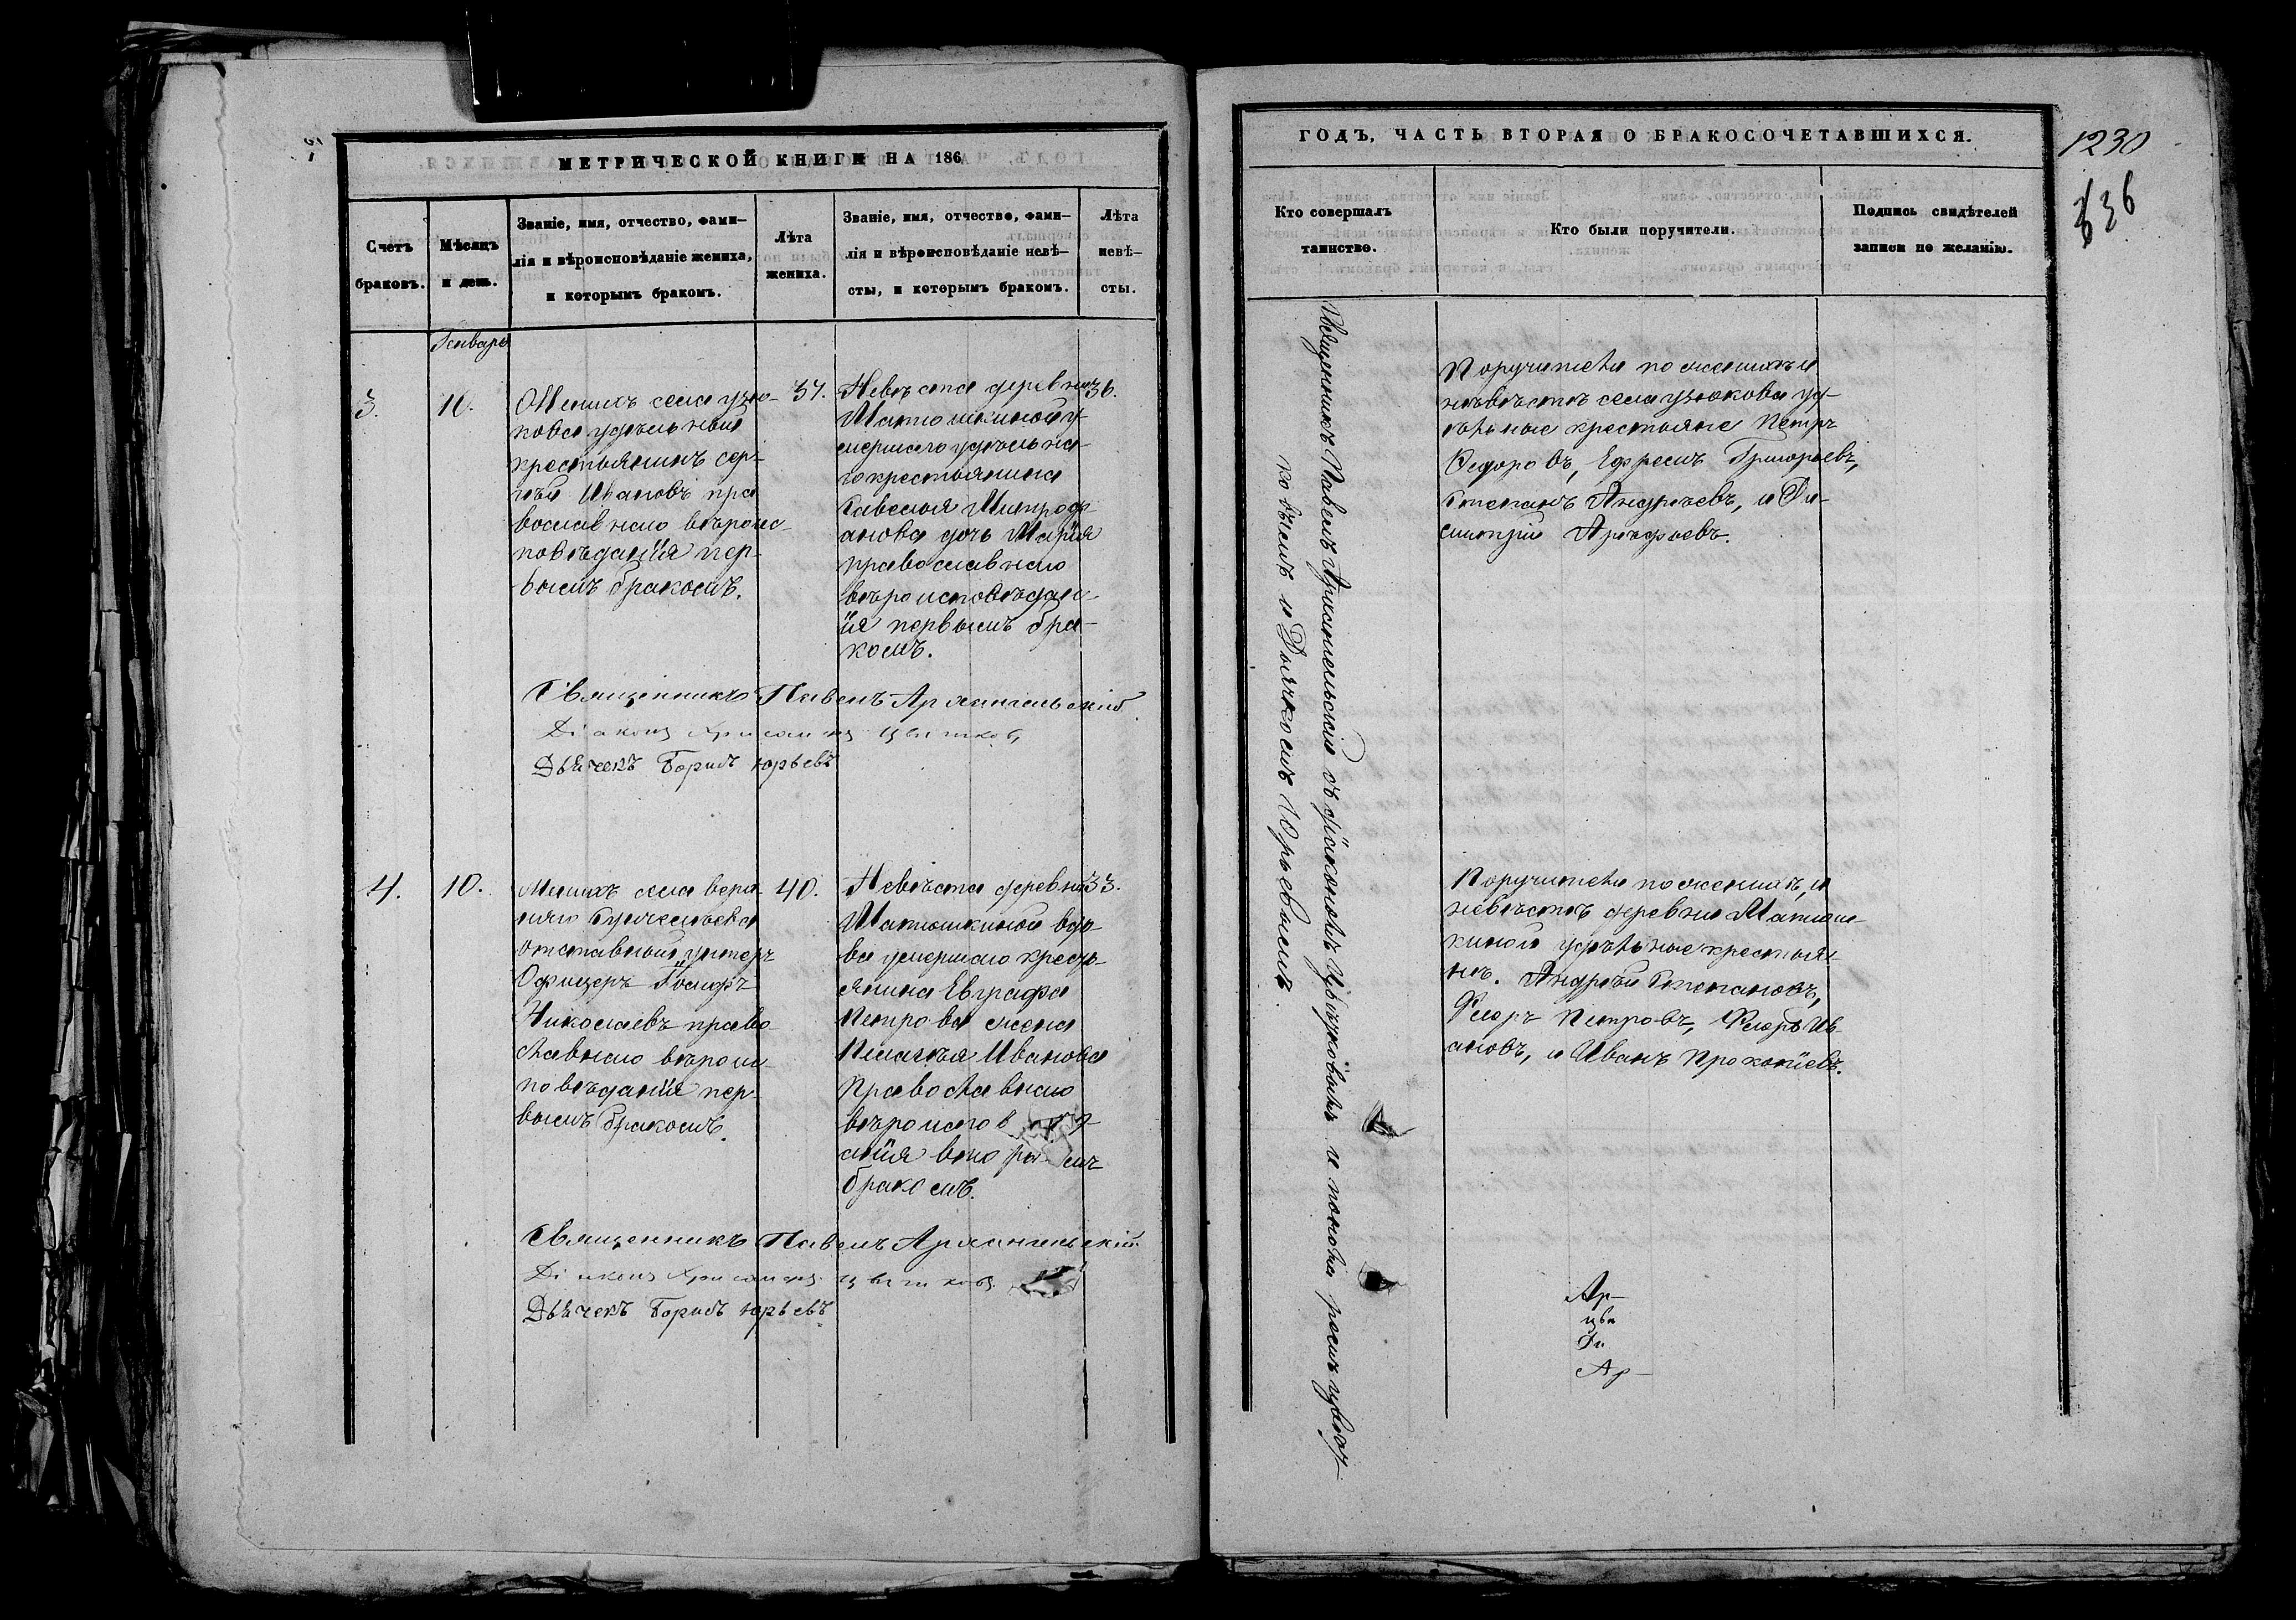 МЕТРИЧЕСКОЙ КНИГИ НА 186
Счетъ
браковъ.
Мѣсяцъ
и день.
Званіе, имя, отчество, фами-
лія и вѣроисповѣданіе жениха,
и которымъ бракомъ.
Лѣта
жениха.
Званіе, имя, отчество, фами-
лія и вѣроисповѣданіе невѣ-
сты, и которымъ бракомъ.
Лѣта
невѣ-
сты.
Генварь
3.
10.
Женихъ села узю-
кова удѣльный
крестьянинъ Сер-
гѣй Ивановъ пра
вославнаго вѣроис-
повѣданія пер-
вымъ бракомъ.
37.
Невѣста деревни
Матюшкиной у-
мершаго удѣльна-
го крестьянина
Савелия Митроф-
анова дочь Марія
православнаго
вѣроисповѣдан-
ія первымъ бра-
комъ.
36.
Священникъ Павелъ Архангельскій
Діаконъ Цвѣтковъ
Дьячекъ Борисъ Юрьевъ
4.
10.
села верх
няго
отставный унтеръ
Офицеръ Іосифъ
Николаевъ право-
славнаго вѣроис-
повѣданія пер-
вымъ бракомъ.
40.
Невѣста деревни
Матюшкиной вдо-
ва умершаго кресть-
янина Евграфа
Петрова жена
Пелагѣя Иванова
Православнаго
вѣроиспов
анія вторымъ
бракомъ.
33.
Священникъ Павелъ Архангельскій
Діаконъ Цвѣтковъ
Дьячекъ Борисъ Юрьевъ
ГОДЪ, ЧАСТЬ ВТОРАЯ О БРАКОСОЧЕТАВШИХСЯ.
1230
636
Кто совершалъ
таинство.
Кто были поручители.
Подпись свидѣтелей
записи по желанію.
Священникъ Павелъ Архангельскій съ діакономъ Цвѣтковымъ и цвѣт-
ковымъ и Дьячкомъ Юрьевымъ.
Поручители по женихѣ и
невѣстѣ села узюкова уд-
ѣльные крестьяне Петръ
Федоровъ, Ефремъ Григорьевъ,
Степанъ Андрѣевъ, и Ди-
митрій Арефьевъ.
Поручители по женихѣ, и
невѣстѣ деревни Матюш-
киной удѣльные крестья-
нѣ. Андрѣй Степановъ,
Федоръ Петровъ, Федоръ Ив-
ановъ, и Иванъ Прокопіевъ.
Ар-
цвѣ
Ди
Ар-